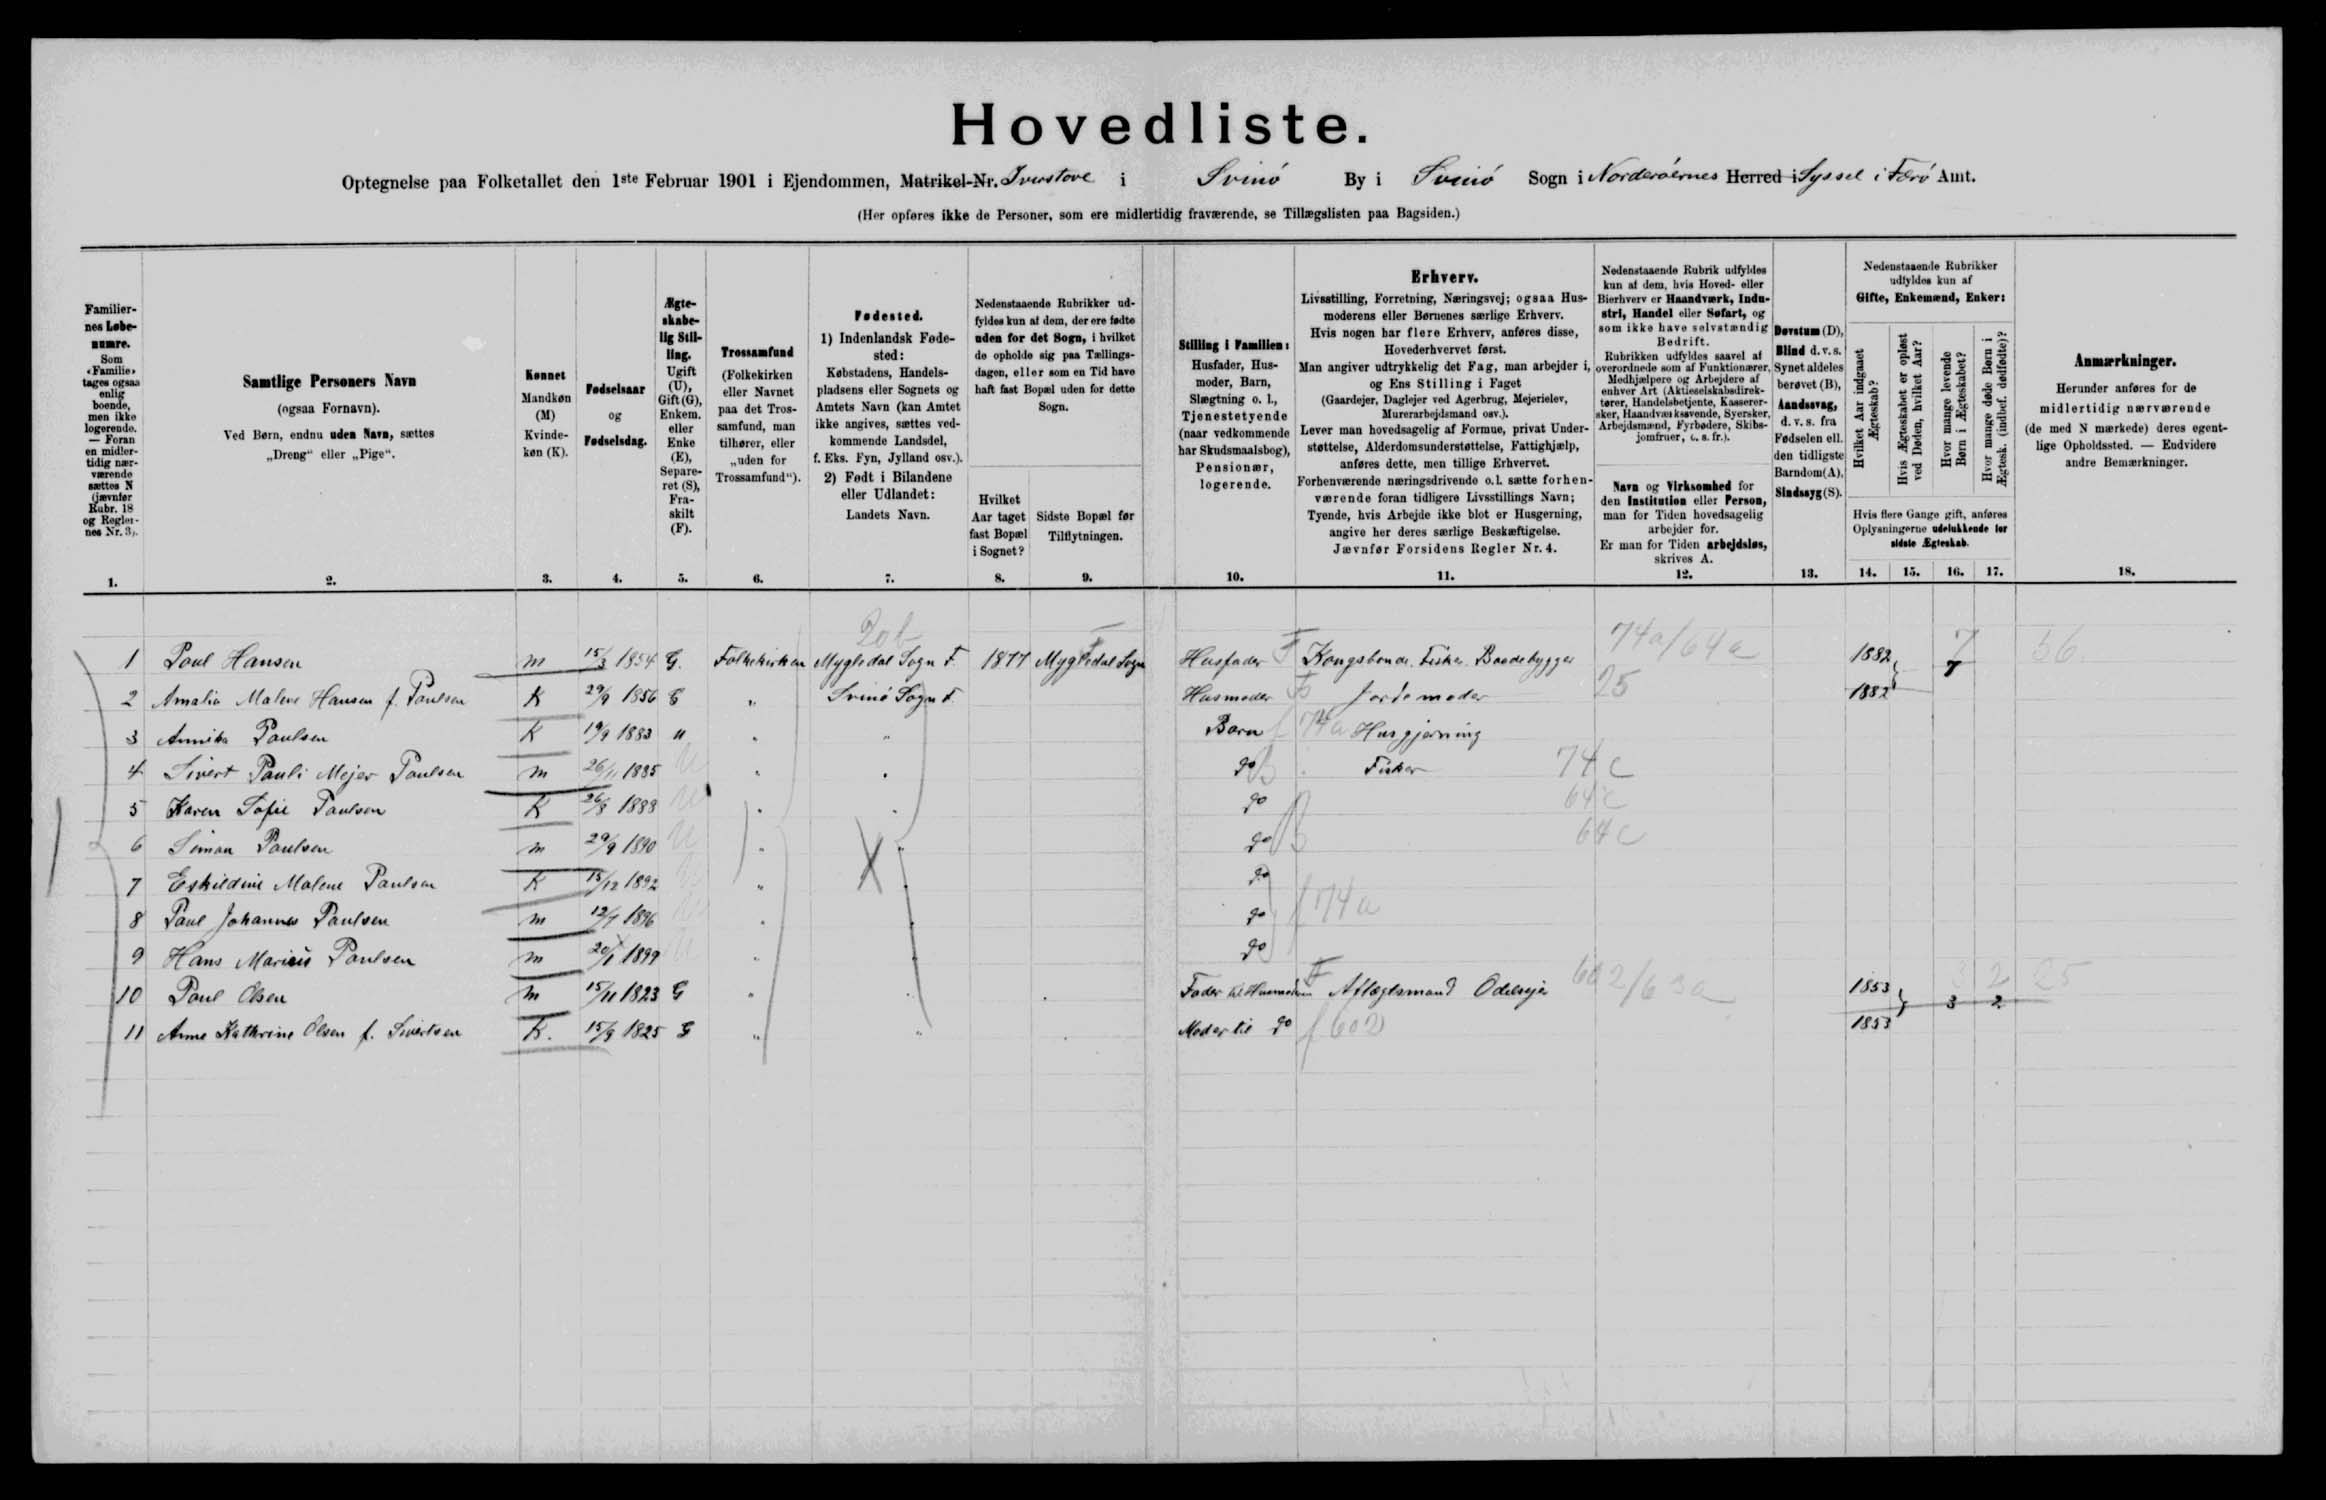 Hovedliste.
Optegnelse paa Folketallet den 1ste Februar 1901 i Ejendommen, Matrikel-Nr. Iverstove i Svinö By i Svinö Sogn i Norderöernes Herred i Syssel i Færö Amt.
(Her opføres ikke de Personer, som ere midlertidig fraværende, se Tillægslisten paa Bagsiden.)
Familiernes Løbenumre.
Som «Familie» tages ogsaa enlig boende, men ikke logerende. — Foran en midlertidig nærværende sættes N (jævnfør Rubr. 18 og Reglernes Nr. 3).
1.
Samtlige Personers Navn
(ogsaa Fornavn).
Ved Børn, endnu uden Navn, sættes
„Dreng“ eller „Pige“.
2.
Kønnet
Mandkøn (M)
Kvindekøn (K).
3.
Fødselsaar
og
Fødselsdag.
4.
Ægteskabelig Stilling.
Ugift (U), Gift (G), Enkem. eller Enke (E), Separeret (S), Fraskilt (F).
5.
Trossamfund
(Folkekirken eller Navnet paa det Trossamfund, man tilhører, eller „uden for Trossamfund“).
6.
Fødested.
1) Indenlandsk Fødested:
Købstadens, Handelspladsens eller Sognets og Amtets Navn (kan Amtet ikke angives, sættes vedkommende Landsdel, f. Eks. Fyn, Jylland osv.).
2) Født i Bilandene eller Udlandet:
Landets Navn.
7.
Nedenstaaende Rubrikker udfyldes kun af dem, der ere fødte uden for det Sogn, i hvilket de opholde sig paa Tællingsdagen, eller som en Tid have haft fast Bopæl uden for dette Sogn.
Hvilket Aar taget fast Bopæl i Sognet?
8.
Sidste Bopæl før Tilflytningen.
9.
Stilling i Familien:
Husfader, Husmoder, Barn, Slægtning o. l., Tjenestetyende (naar vedkommende har Skudsmaalsbog), Pensionær, logerende.
10.
Erhverv.
Livsstilling, Forretning, Næringsvej; ogsaa Husmoderens eller Børnenes særlige Erhverv.
Hvis nogen har flere Erhverv, anføres disse, Hovederhvervet først.
Man angiver udtrykkelig det Fag, man arbejder i, og Ens Stilling i Faget
(Gaardejer, Daglejer ved Agerbrug, Mejerielev, Murerarbejdsmand osv.).
Lever man hovedsagelig af Formue, privat Understøttelse, Alderdomsunderstøttelse, Fattighjælp, anføres dette, men tillige Erhvervet.
Forhenværende næringsdrivende o.l. sætte forhenværende foran tidligere Livsstillings Navn; Tyende, hvis Arbejde ikke blot er Husgerning, angive her deres særlige Beskæftigelse.
Jævnfør Forsidens Regler Nr. 4.
11.
Nedenstaaende Rubrik udfyldes kun af dem, hvis Hoved- eller Bierhverv er Haandværk, Industri, Handel eller Søfart, og som ikke have selvstændig Bedrift.
Rubrikken udfyldes saavel af overordnede som af Funktionærer, Medhjælpere og Arbejdere af enhver Art (Aktieselskabsdirektører, Handelsbetjente, Kasserersker, Haandværkssvende, Syersker, Arbejdsmænd, Fyrbødere, Skibsjomfruer, o. s. fr.).
Navn og Virksomhed for den Institution eller Person, man for Tiden hovedsagelig arbejder for.
Er man for Tiden arbejdsløs, skrives A.
12.
Døvstum (D), Blind d. v. s. Synet aldeles berøvet (B), Aandssvag, d. v. s. fra Fødselen ell. den tidligste Barndom (A), Sindssyg (S).
13.
Nedenstaaende Rubrikker udfyldes kun af
Gifte, Enkemænd, Enker:
Hvilket Aar indgaaet Ægteskab?
Hvis Ægteskabet er opløst ved Døden, hvilket Aar?
Hvor mange levende Børn i Ægteskabet?
Hvor mange døde Børn i Ægtesk. (indbef. dødfødte)?
Hvis flere Gange gift, anføres Oplysningerne udelukkende for sidste Ægteskab.
14. 15. 16. 17.
Anmærkninger.
Herunder anføres for de midlertidig nærværende (de med N mærkede) deres egentlige Opholdssted. — Endvidere andre Bemærkninger.
18.
20b 74a/64a 7 56
1 Poul Hansen m 15/3 1854 G. Folkekirken Mygledal Sogn F. 1877 Mygledal Sogn Husfader F Kongsbonde. Fisker. Baadebygger 1882 7
2 Amalia Malene Hansen f. Paulsen K 29/9 1856 G " Svinö Sogn F. Husmoder Jordemoder 25 1882
3 Annika Paulsen K 19/9 1883 u " " Barn f 74a Husgjerning
4 Sivert Pauli Mejer Paulsen m 26/11 1885 U " " do Fisker 74c
5 Karen Sofie Paulsen K 26/8 1888 U " " do 64c
6 Simon Paulsen m 29/9 1890 U " " do 64c
7 Eskildine Malene Paulsen K 15/12 1892 U " " do
8 Poul Johannes Paulsen m 12/7 1896 U " " do f 74a
9 Hans Marius Paulsen m 20/1 1899 U " " do
10 Poul Olsen m 15/11 1823 G " " Fader til Husmoderen F Aftægtsmand Odelsejer 602/63a 1853 3 2 25
11 Anne Kathrine Olsen f. Sivertsen K. 15/9 1825 G " " Moder til do f 602 1853